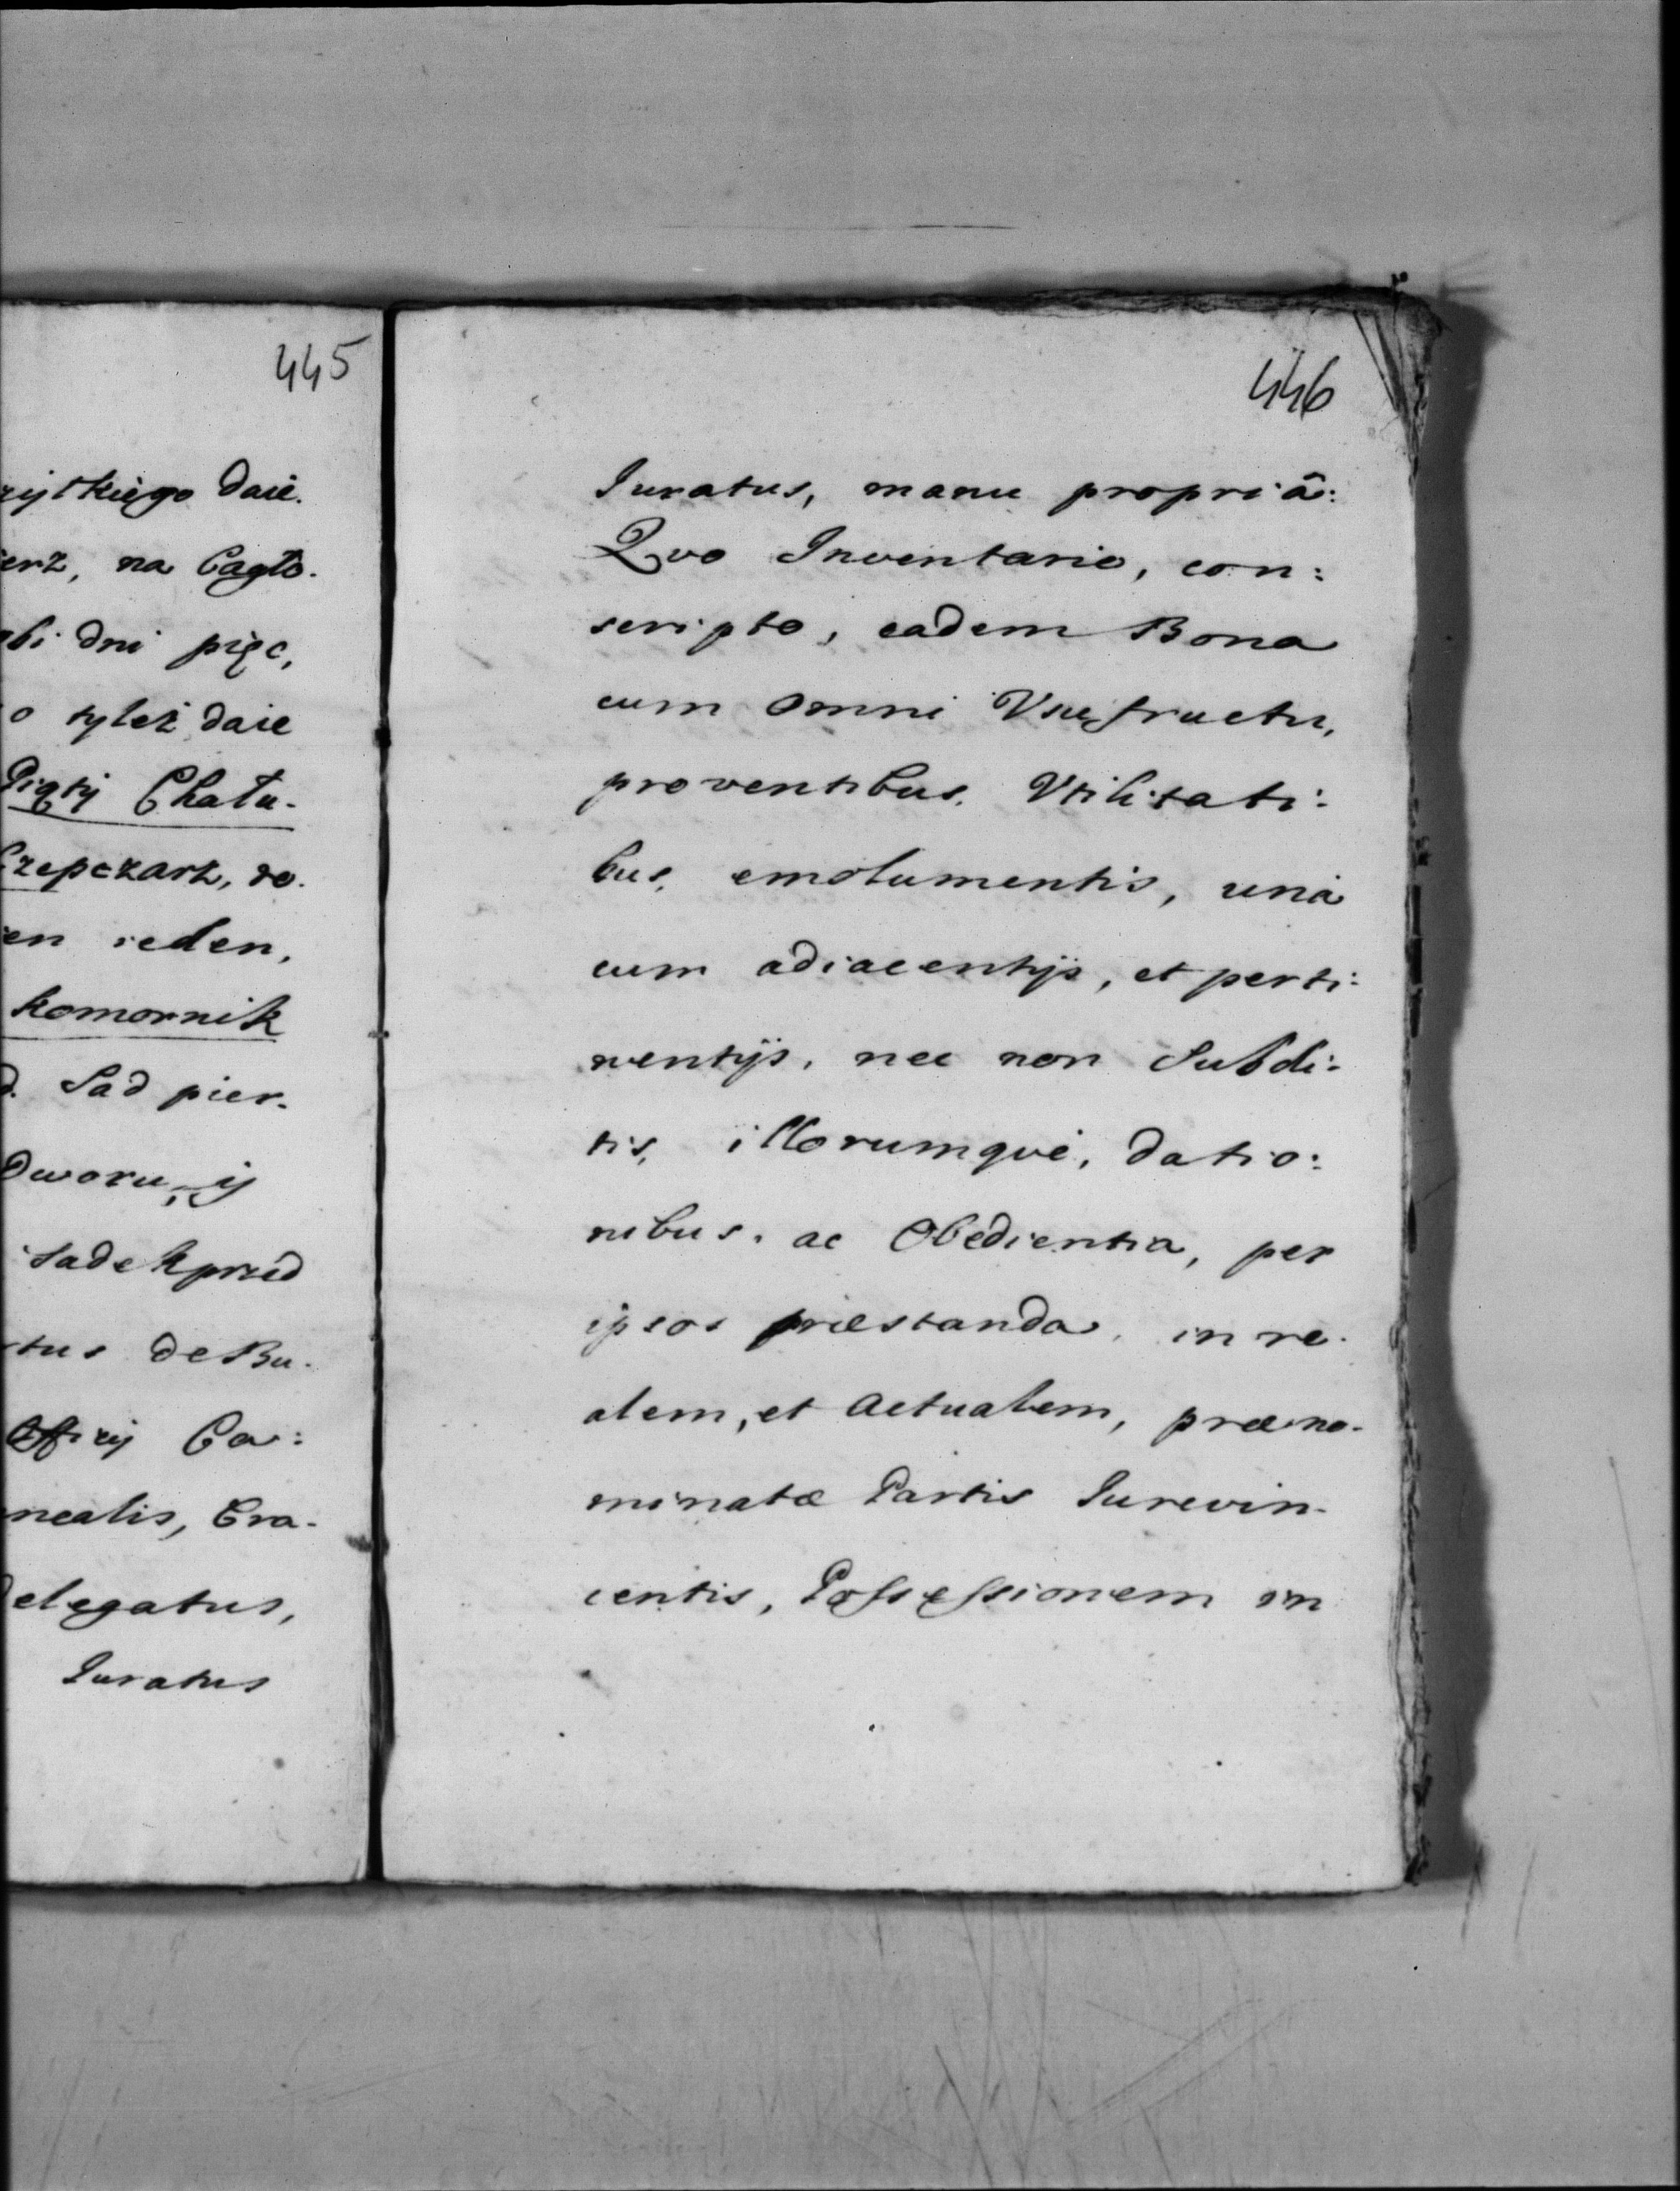 445
zÿtkiego daie.
ierz, na Cagło.
abi dni pięc,
o tyleż daie
Piątÿ Chału-
Czepczarz, ro.
ien ieden,
komornik
d. Sad pier-
Dworu, ÿ
sadek przed
tus de Bu-
Officÿ Ca:
nealis, Cra-
Delegatus,
Iuratus
446
Iuratus, manu propriâ:
Qvo Inventario, con:
scripto, eadem Bona
cum omni Vsufructu,
proventibus, Vtilitati:
bus, emolumentis, unà
cum adiacentÿs, et perti:
nentÿs, nec non Subdi:
tis, illorumqvè, datio:
nibus, ac Obedientia, per
ipsos præstanda, in re-
alem, et actualem, præno-
minatæ Partis Iurevin-
centis, Possessionem in